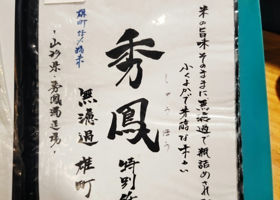 米の旨味そのままに無濾過で瓶詰めされた
ふくよかで芳醇な味わい
秀鳳
しゅうほう
特別純
無濾過 雄町
~山形県・秀鳳酒造場~